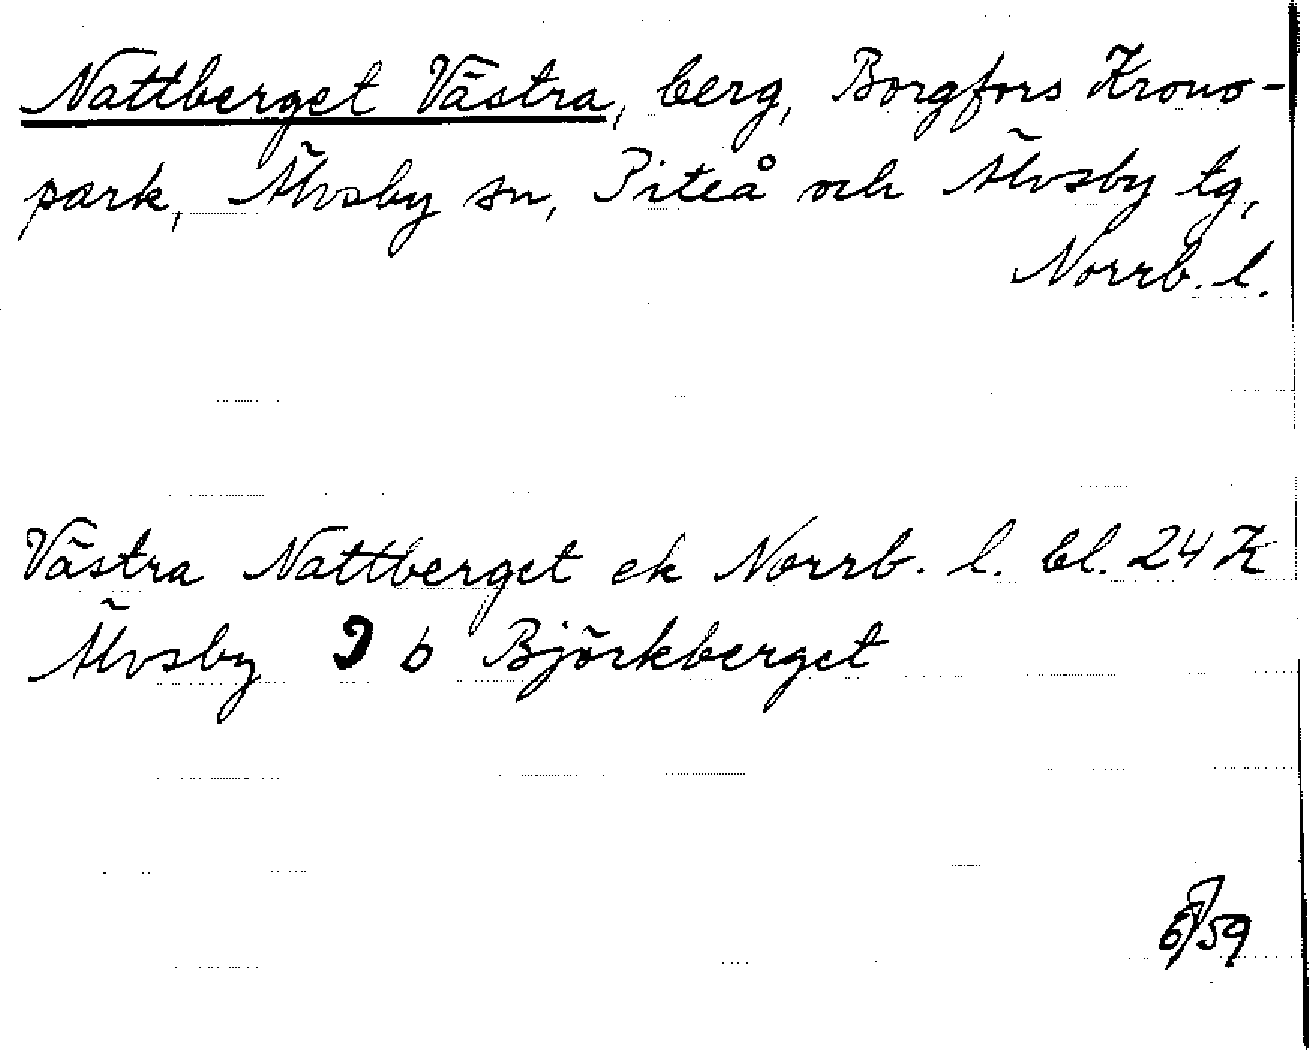 Nattberget Västra, berg, Borgfors Krono-
park, Älvsby sn, Piteå och Älvsby tg,
Norrb. l.
Västra Nattberget ek Norrb. l. bl. 24 K
Älvsby 9 b Björkberget
6/59